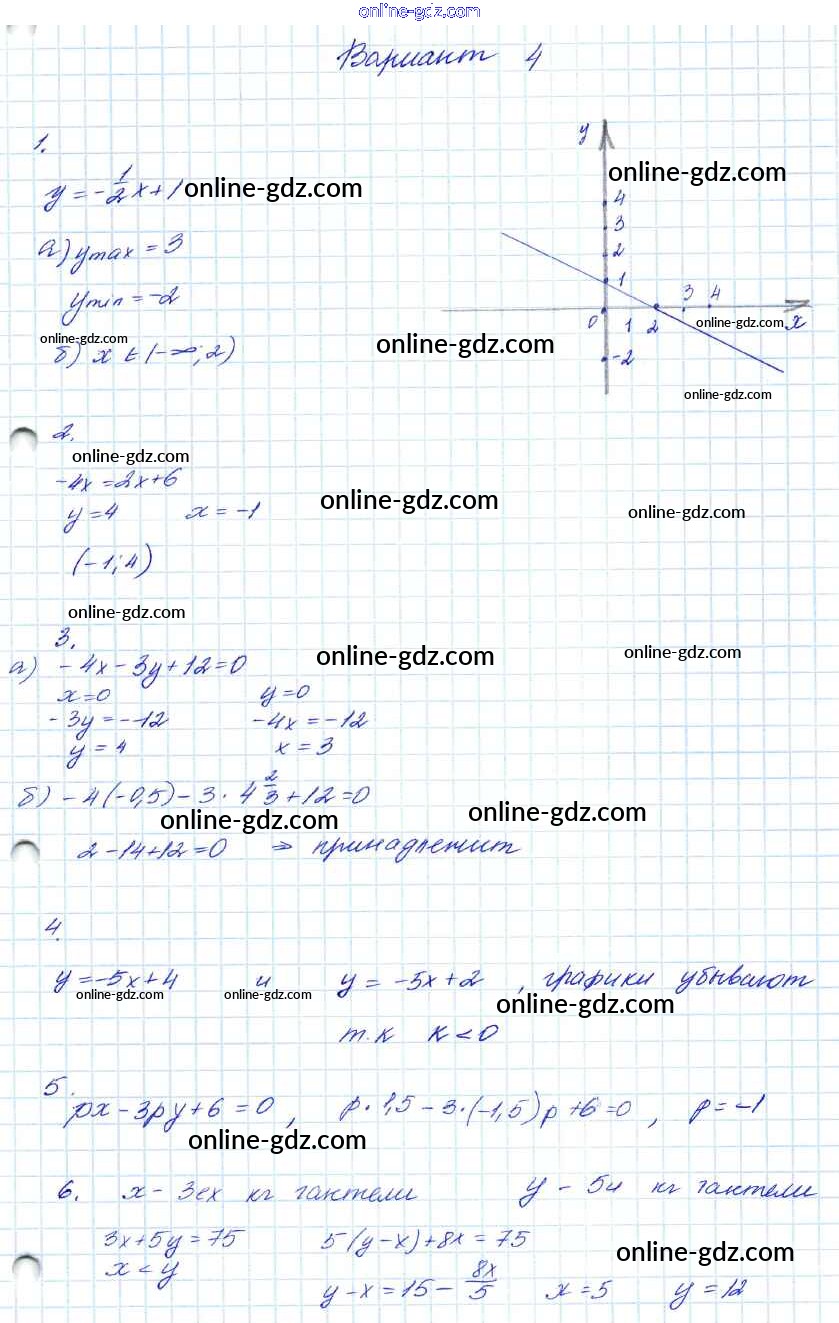 online-gdz.com
Вариант 4
1.
y = -1/2 x + 1 online-gdz.com
y
online-gdz.com
4
3
2
1
0 1 2 3 4 x
-2
online-gdz.com
а) ymax = 3
ymin = -2
online-gdz.com
online-gdz.com
б) x ∈ (-∞; 2)
online-gdz.com
2.
online-gdz.com
-4x = 2x+6
online-gdz.com
y = 4 x = -1
online-gdz.com
(-1; 4)
online-gdz.com
3.
а) -4x - 3y + 12 = 0
online-gdz.com
online-gdz.com
x=0 y=0
-3y = -12 -4x = -12
y = 4 x = 3
б) -4(-0,5) - 3 · 4 2/3 + 12 = 0
online-gdz.com
online-gdz.com
2 - 14 + 12 = 0 ⇒ принадлежит
4.
y = -5x + 4 и y = -5x + 2 , графики убывают
online-gdz.com
online-gdz.com
online-gdz.com
т.к К < 0
5.
px - 3py + 6 = 0 , p · 1,5 - 3 · (-1,5)p + 6 = 0 , p = -1
online-gdz.com
6. x - 3ех кг гантели y - 5и кг гантели
3x + 5y = 75 5(y-x) + 8x = 75
online-gdz.com
x < y
y - x = 15 - 8x/5 x = 5 y = 12